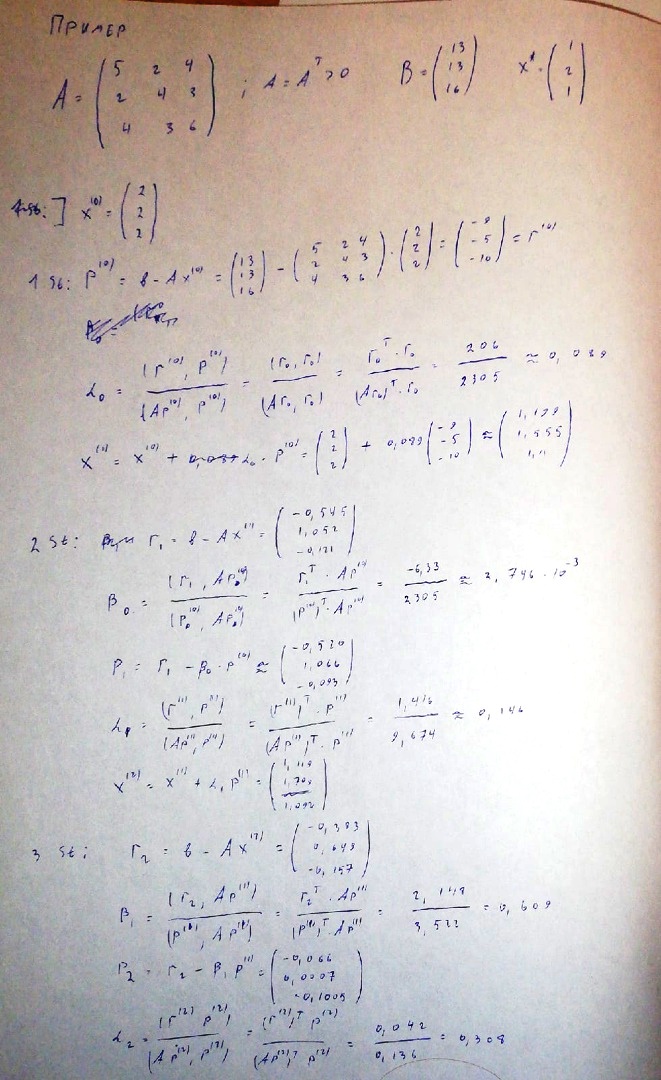 Пример
A = ( 5 2 4 ; 2 4 3 ; 4 3 6 ) ; A = A^T > 0 B = ( 13 ; 13 ; 16 ) x* = ( 1 ; 2 ; 1 )
] x^(0) = ( 2 ; 2 ; 2 )
1 St: P^(0) = b - A x^(0) = ( 13 ; 13 ; 16 ) - ( 5 2 4 ; 2 4 3 ; 4 3 6 ) · ( 2 ; 2 ; 2 ) = ( -9 ; -5 ; -10 ) = r^(0)
α_0 = (r^(0), p^(0)) / (A p^(0), p^(0)) = (r_0, r_0) / (A r_0, r_0) = r_0^T · r_0 / (A r_0)^T · r_0 = 206 / 2305 ≈ 0,089
x^(1) = x^(0) + α_0 · p^(0) = ( 2 ; 2 ; 2 ) + 0,089 ( -9 ; -5 ; -10 ) ≈ ( 1,199 ; 1,555 ; 1,11 )
2 St: r_1 = b - A x^(1) = ( -0,545 ; 1,052 ; -0,121 )
β_0 = (r_1, A p^(0)) / (p^(0), A p^(0)) = r_1^T · A p^(0) / (p^(0))^T · A p^(0) = -6,33 / 2305 ≈ 2,746 · 10^-3
P_1 = r_1 - β_0 · p^(0) ≈ ( -0,520 ; 1,066 ; -0,093 )
α_1 = (r^(1), p^(1)) / (A p^(1), p^(1)) = (r^(1))^T · p^(1) / (A p^(1))^T · p^(1) = 1,416 / 9,674 ≈ 0,146
x^(2) = x^(1) + α_1 p^(1) = ( 1,119 ; 1,709 ; 1,092 )
3 St: r_2 = b - A x^(2) = ( -0,383 ; 0,648 ; -0,157 )
β_1 = (r_2, A p^(1)) / (p^(1), A p^(1)) = r_2^T · A p^(1) / (p^(1))^T · A p^(1) = 2,148 / 3,522 = 0,609
P_2 = r_2 - β_1 p^(1) = ( -0,066 ; 0,0007 ; -0,1005 )
α_2 = (r^(2) p^(2)) / (A p^(2), p^(2)) = (r^(2))^T p^(2) / (A p^(2))^T p^(2) = 0,042 / 0,136 = 0,308